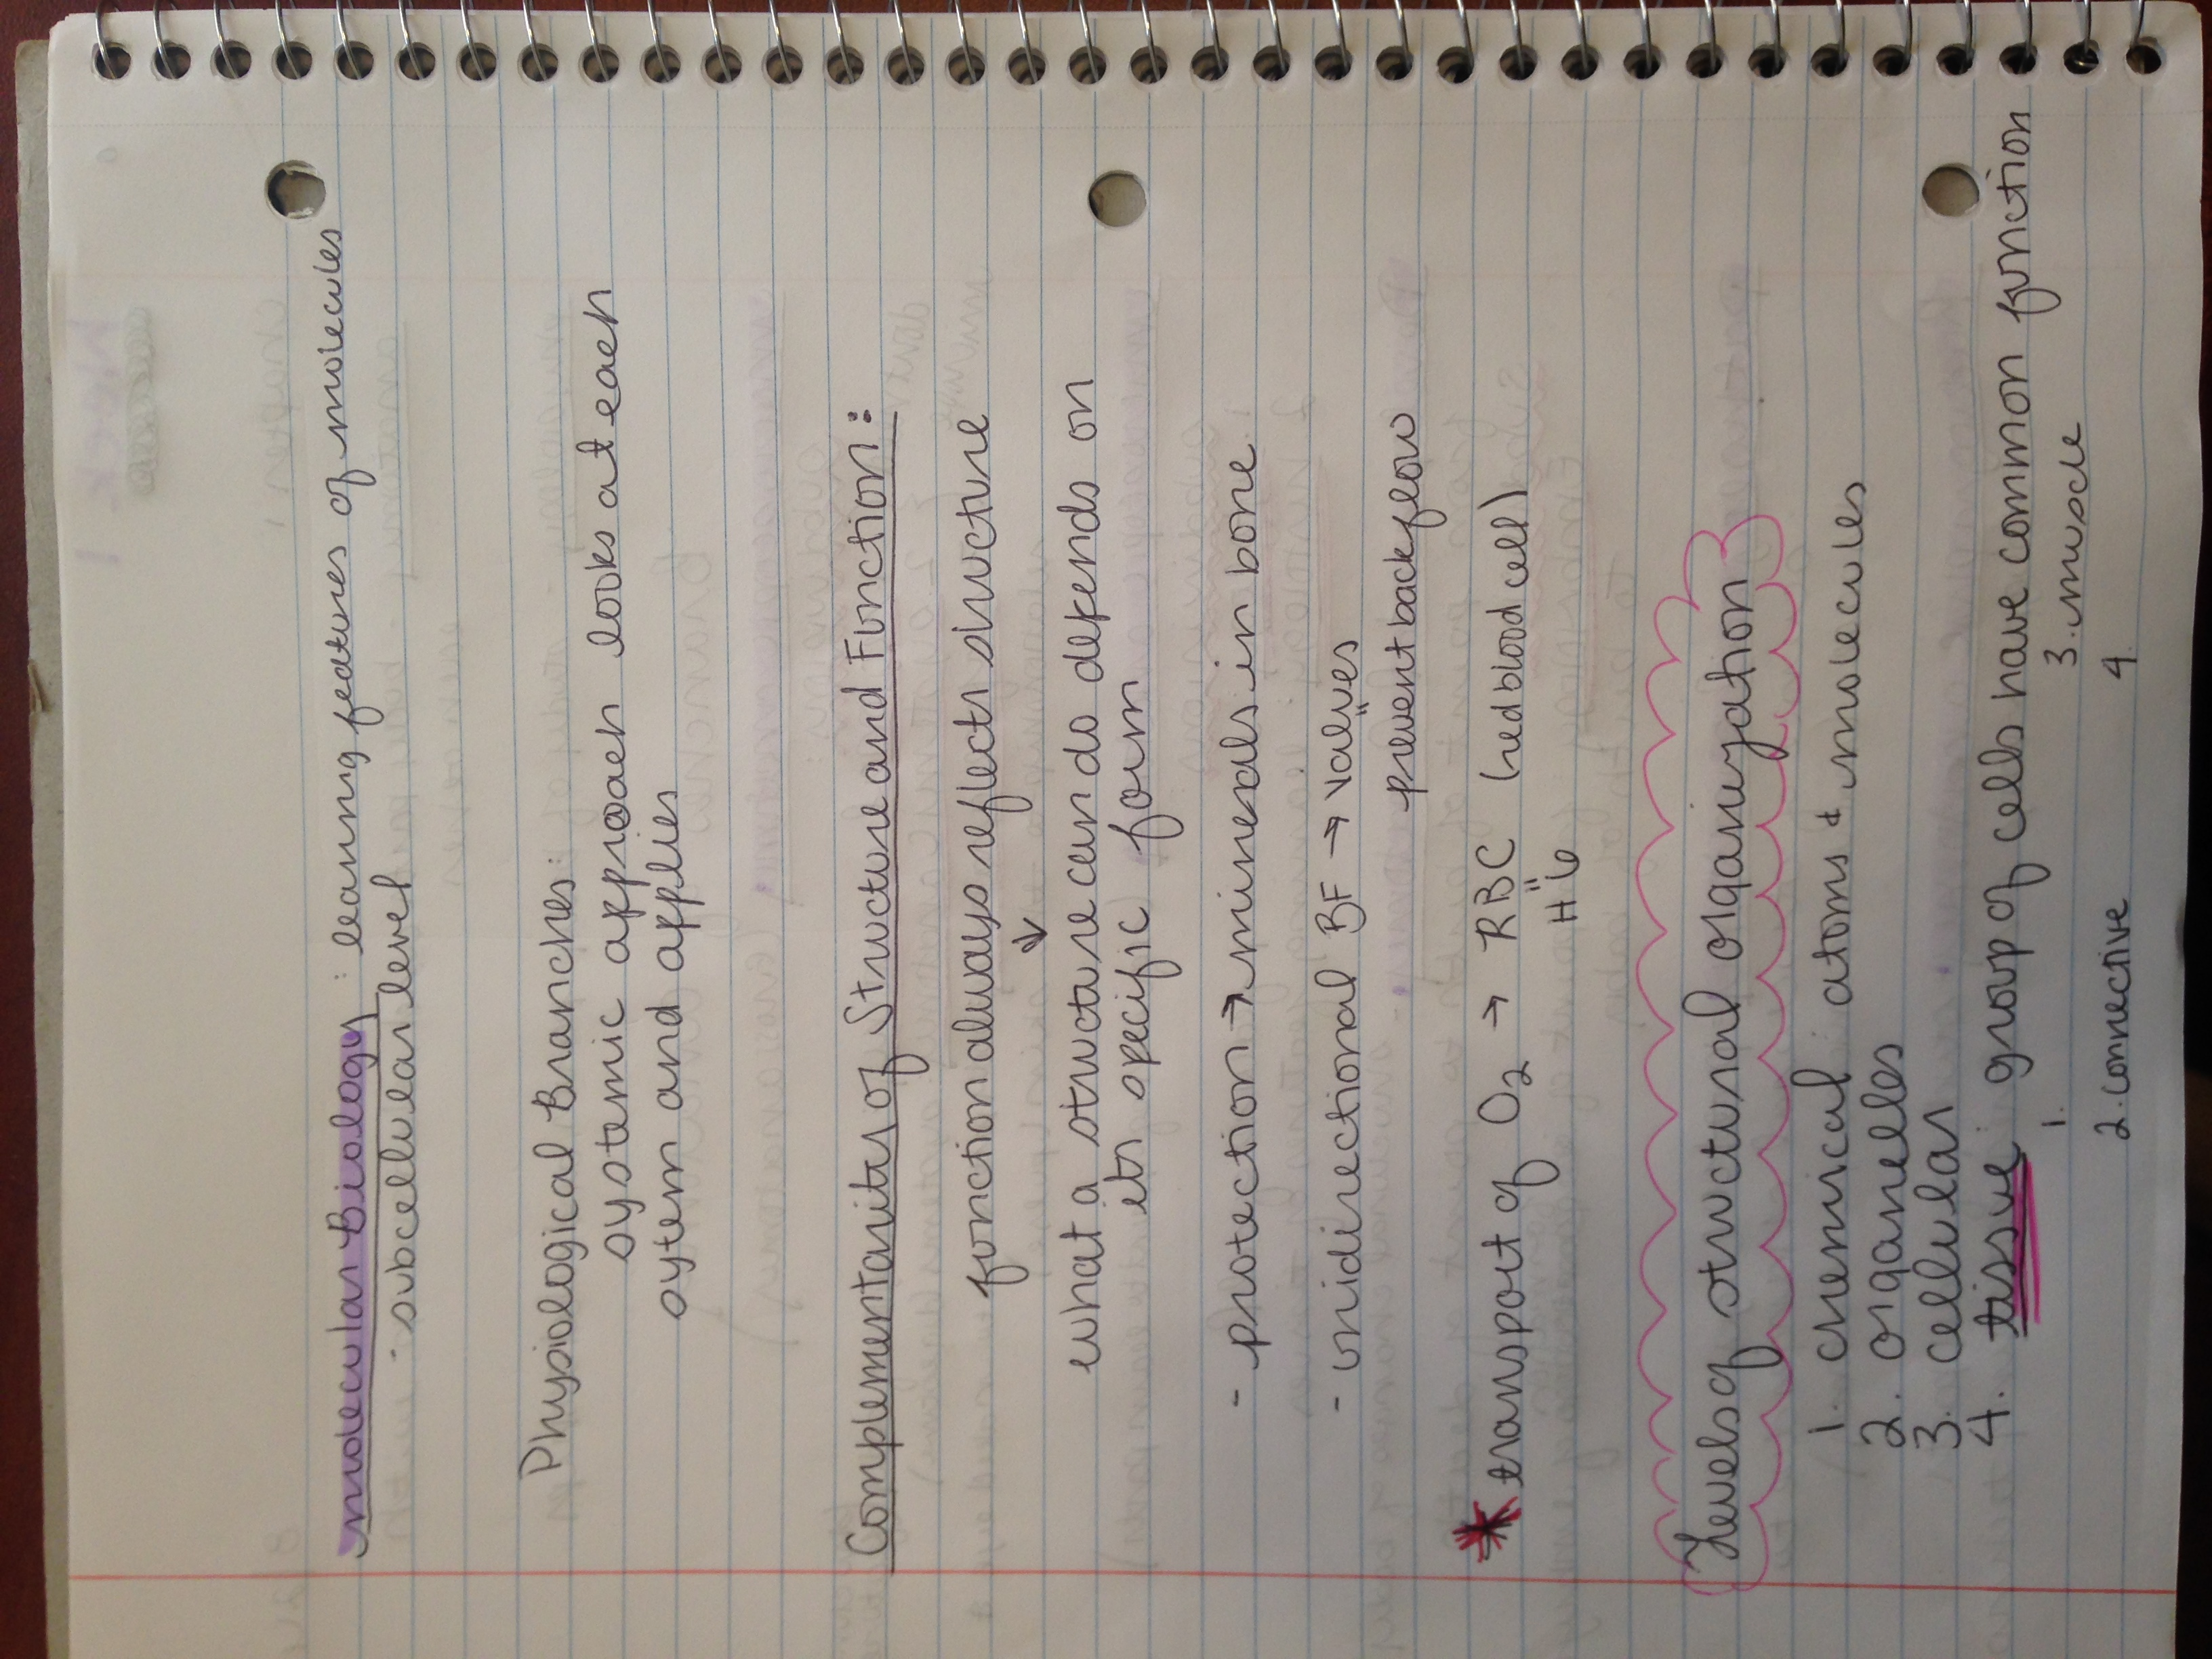 molecular Biology: learning features of molecules
- subcellular level
Physiological Branches:
systemic approach looks at each
sytem and applies
Complementarity of Structure and Function:
function always reflects structure
↓
what a structure can do depends on
its specific form
- protection → minerals in bone
- unidirectional BF → valves
prevent backflow
* transport of O2 → RBC (red blood cell)
Levels of structural organization
1. chemical atoms & molecules
2. organelles
3. cellular
4. tissue: group of cells have common function
1. 3. muscle
2. connective 4.